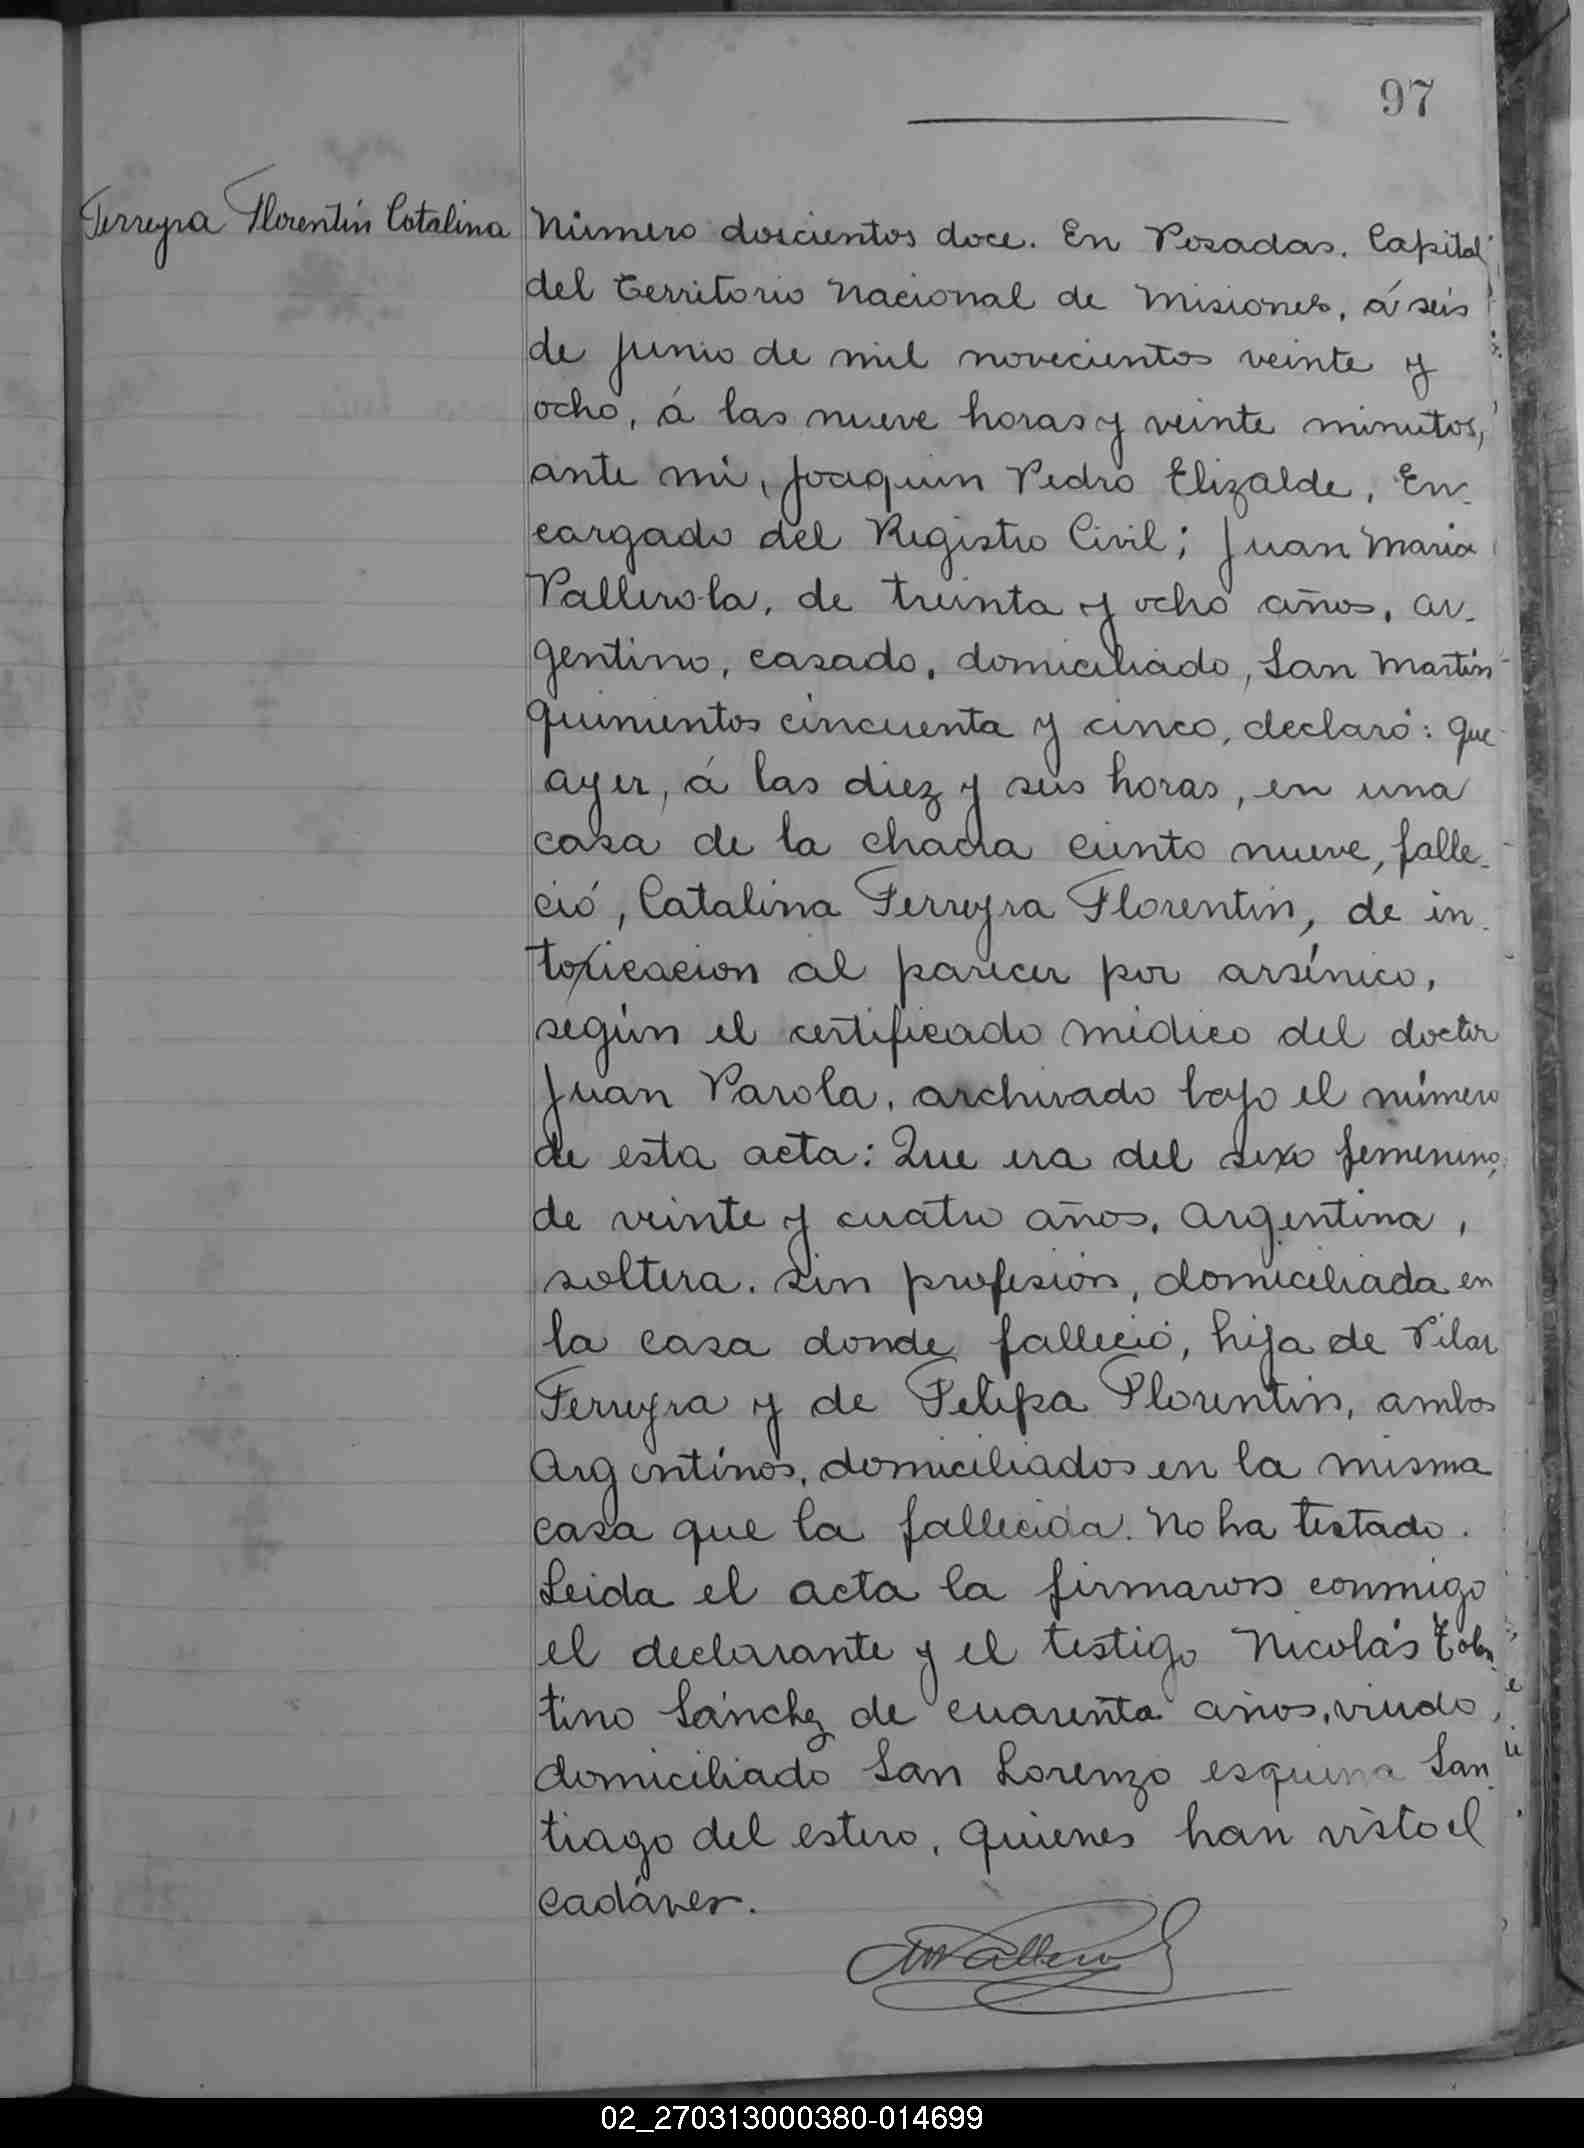 97
Ferreyra Florentín Catalina
Número doscientos doce. En Posadas. Capital
del Territorio Nacional de Misiones, á seis
de junio de mil novecientos veinte y
ocho, á las nueve horas y veinte minutos,
ante mi, Joaquin Pedro Elizalde, En-
cargado del Registro Civil; Juan Maria
Pallerola, de treinta y ocho años, ar-
gentino, casado, domiciliado, San Martín
quinientos cincuenta y cinco, declaró: que
ayer, á las diez y seis horas, en una
casa de la chacra ciento nueve, falle-
ció, Catalina Ferreyra Florentin, de in-
toxicacion al parecer por arsénico,
según el certificado médico del doctor
Juan Parola, archivado bajo el número
de esta acta: Que era del sexo femenino,
de veinte y cuatro años, argentina,
soltera. sin profesión, domiciliada en
la casa donde falleció, hija de Pilar
Ferreyra y de Felipa Florentin, ambos
argentinos, domiciliados en la misma
casa que la fallecida. No ha testado.
Leida el acta la firmaron conmigo
el declarante y el testigo Nicolás Tolen-
tino Sánchez de cuarenta años, viudo,
domiciliado San Lorenzo esquina San-
tiago del estero, quienes han visto el
cadáver.
02_270313000380-014699